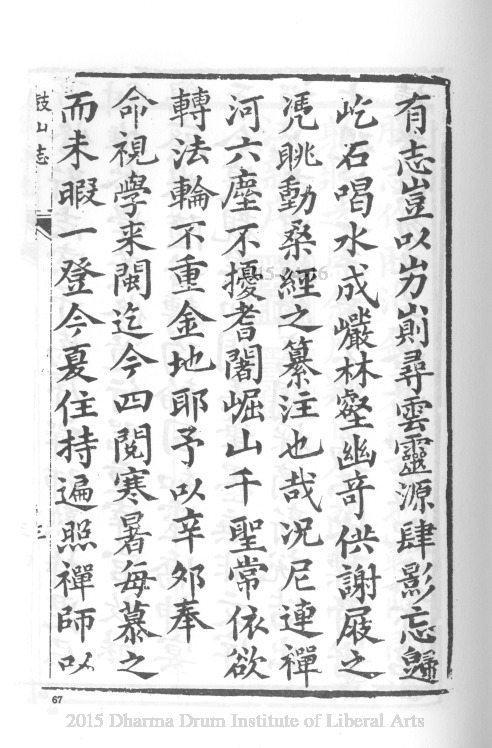 有志豈以屴崱尋雲靈源肆影忘歸
屹石喝水成巖林壑幽奇供謝屐之
凭眺動桑經之纂注也哉况尼連禪
河六塵不擾耆闍崛山千聖常依欲
轉法輪不重金地耶予以辛夘奉
命視學来閩迄今四閱寒暑每慕之
而未暇一登今夏住持遍照禪師以
鼓山志
三
67
2015 Dharma Drum Institute of Liberal Arts